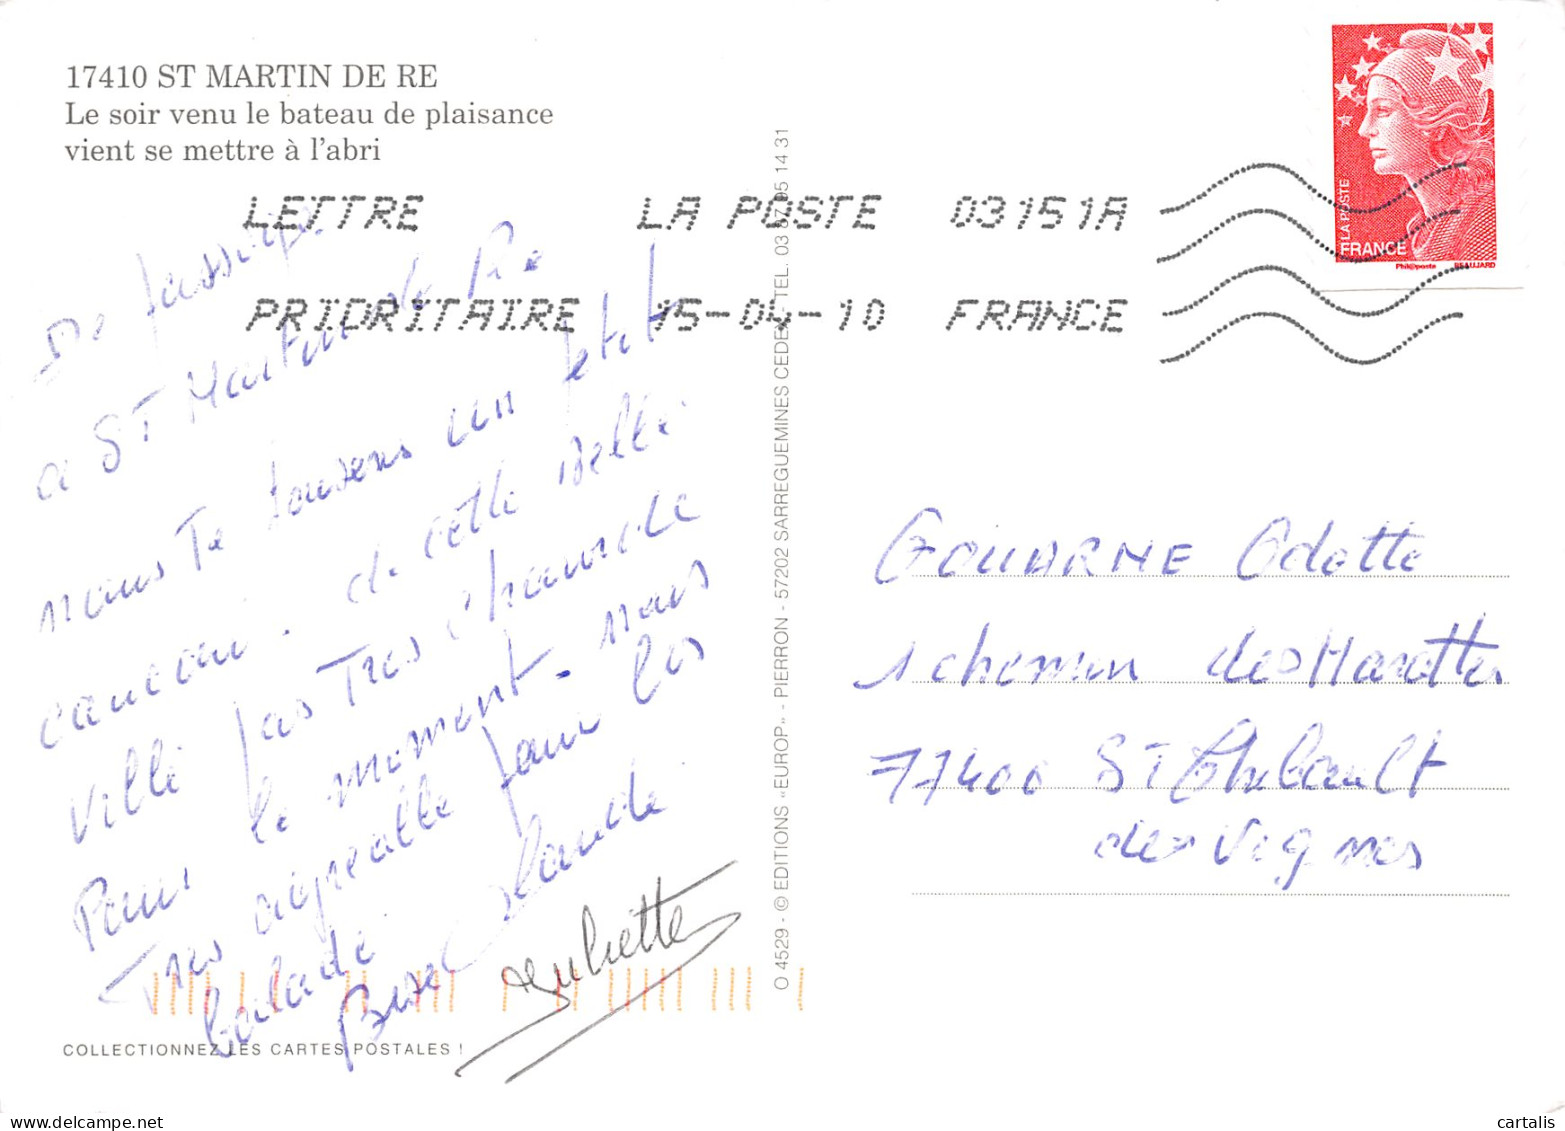 17410 ST MARTIN DE RE
Le soir venu le bateau de plaisance
vient se mettre à l'abri
LETTRE LA POSTE 03151A
PRIORITAIRE 15-04-10 FRANCE
LA POSTE
FRANCE
Phil@poste BEAUJARD
De passage
a ST Martin de Re
nous Te faisons un petit
coucou. de cette belle
ville pas Tres chaude
Pour le moment. mais
Tres agreable pour les
balade
Claude
Juliette
O 4529 - © EDITIONS «EUROP» - PIERRON - 57202 SARREGUEMINES CEDEX - TEL. 03 87 95 14 31
GOUARNE Odette
1 chemin des Marottes
77400 ST Thibault
des Vignes
COLLECTIONNEZ LES CARTES POSTALES !
cartalis
www.delcampe.net